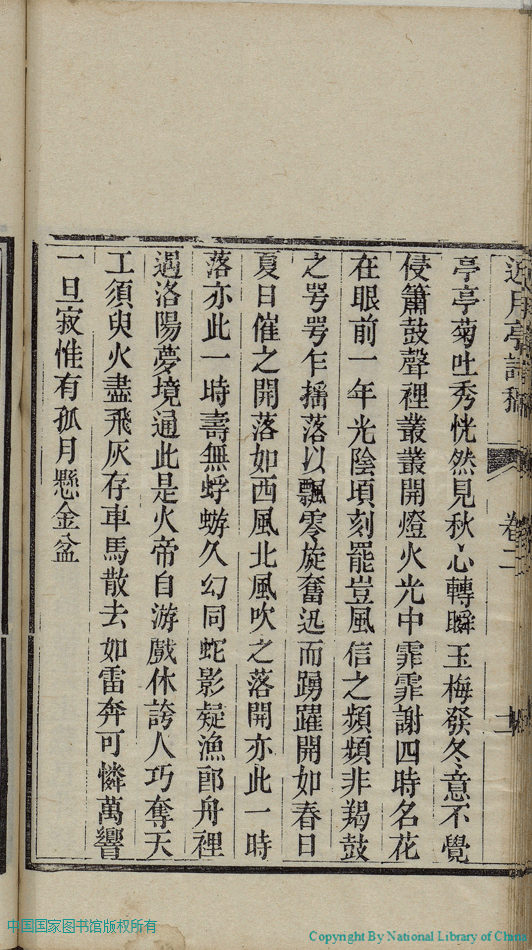 近月亭詩稿 卷二 二
亭亭菊吐秀恍然見秋心轉瞬玉梅發冬意不覺
侵簫鼓聲裡叢叢開燈火光中霏霏謝四時名花
在眼前一年光陰頃刻罷豈風信之頻頻非羯鼓
之咢咢乍搖落以飄零旋奮迅而踴躍開如春日
夏日催之開落如西風北風吹之落開亦此一時
落亦此一時壽無蜉蝣久幻同蛇影疑漁郎舟裡
遇洛陽夢境通此是火帝自游戲休誇人巧奪天
工須臾火盡飛灰存車馬散去如雷奔可憐萬響
一旦寂惟有孤月懸金盆
中国国家图书馆版权所有
Copyright By National Library of China